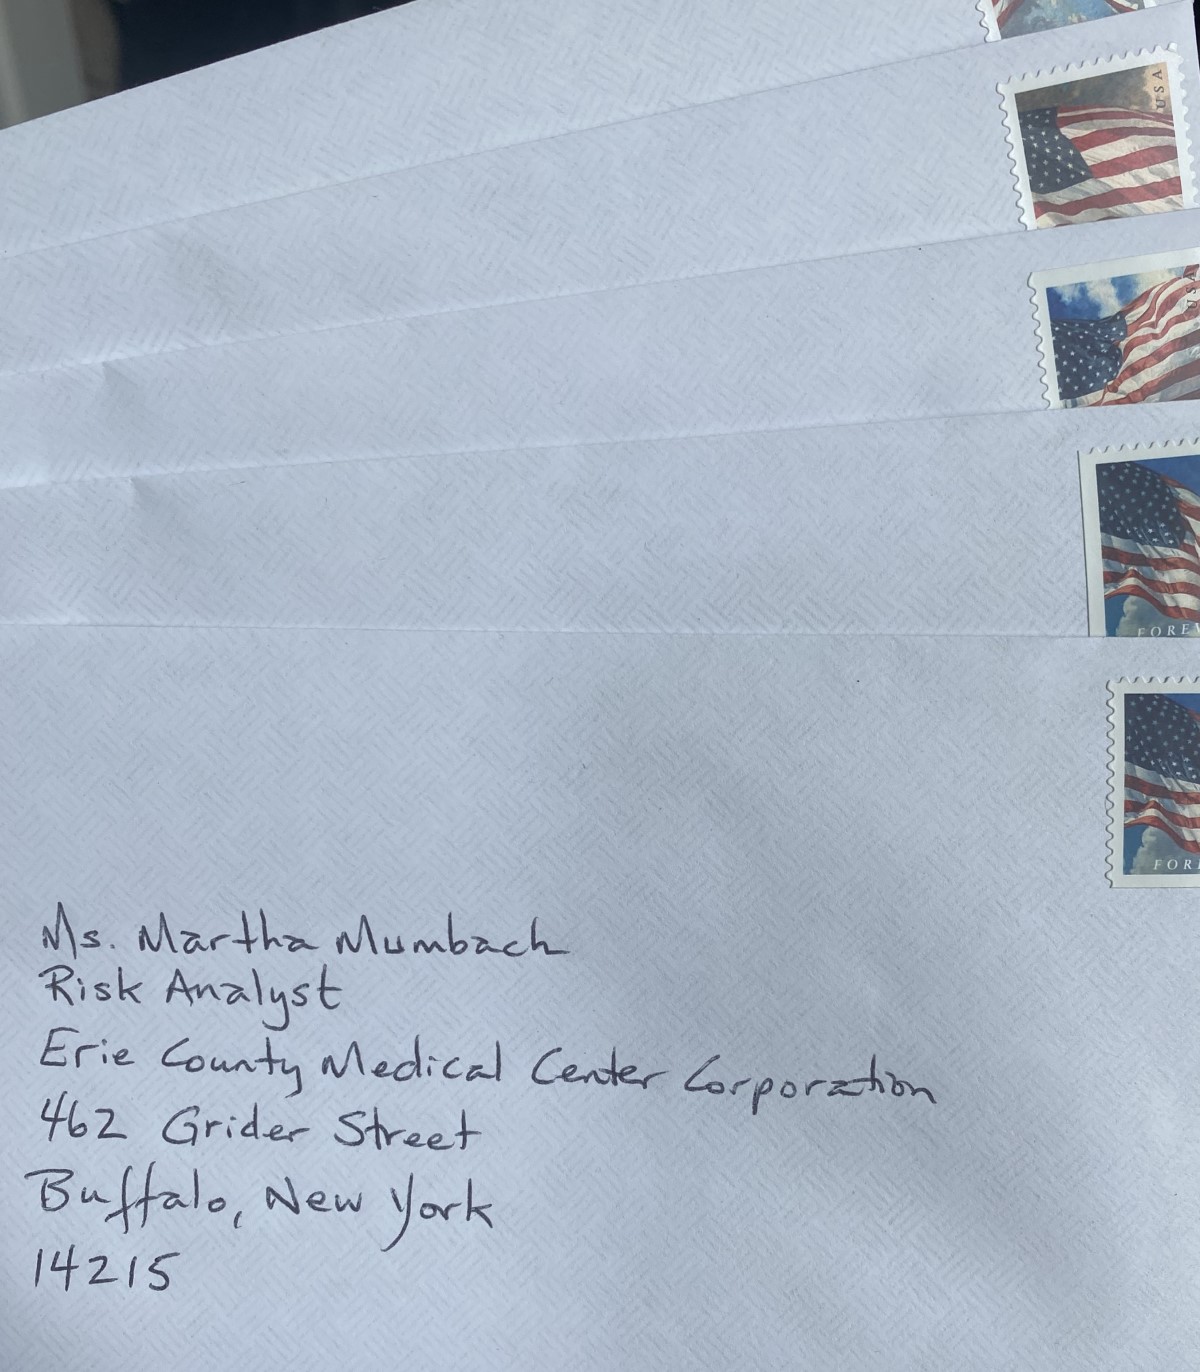 USA
USA
FORE
FOR
Ms. Martha Mumbach
Risk Analyst
Erie County Medical Center Corporation
462 Grider Street
Buffalo, New York
14215